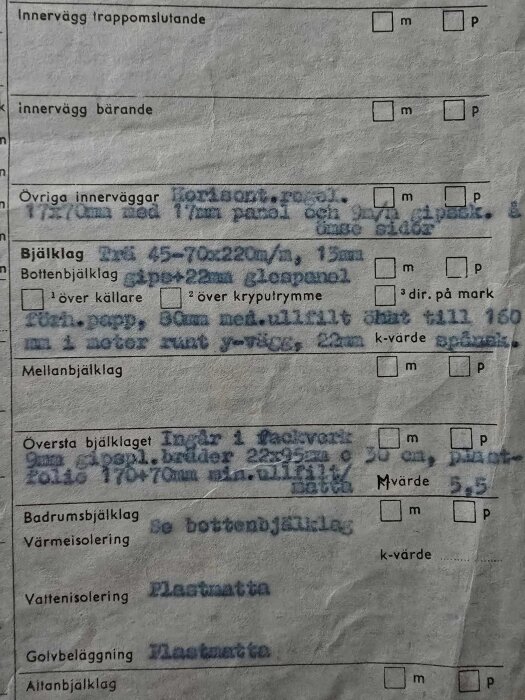 Innervägg trappomslutande m p
innervägg bärande m p
Övriga innerväggar Horisont.regel. m p
17x70mm med 17mm panel och 9m/m gipssk. å
ömse sidor
Bjälklag Trä 45-70x220m/m, 13mm
Bottenbjälklag gips+22mm glespanel m p
1 över källare 2 över kryputrymme 3 dir. på mark
förh.papp, 80mm med.ullfilt ökat till 160
mm i meter runt y-vägg, 22mm k-värde spånsk.
Mellanbjälklag m p
Översta bjälklaget Ingår i fackverk m p
9mm gipspl.bräder 22x95mm c 30 cm, plast-
folie 170+70mm min.ullfilt/
matta Mvärde 5,5
Badrumsbjälklag Se bottenbjälklag m p
Värmeisolering k-värde
Vattenisolering Plastmatta
Golvbeläggning Plastmatta
Altanbjälklag m p